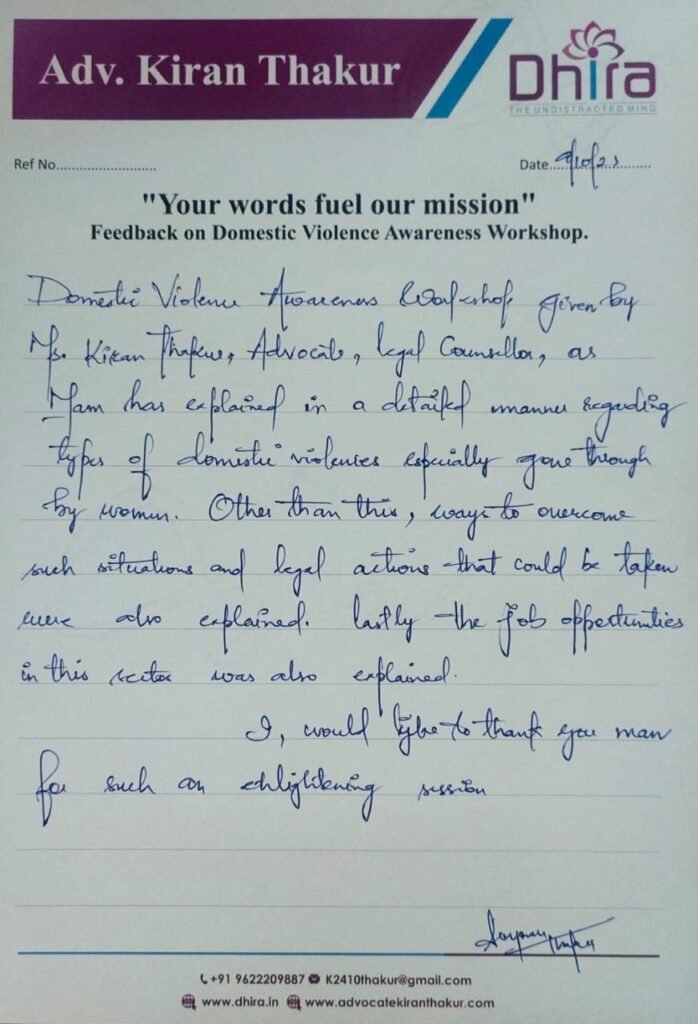 Adv. Kiran Thakur
Dhira
THE UNDISTRACTED MIND
Ref No..........................
Date...9/10/23........
"Your words fuel our mission"
Feedback on Domestic Violence Awareness Workshop.
Domestic Violence Awareness Workshop, given by
Ms. Kiran Thakur, Advocate, legal Counsellor, as
Mam has explained in a detailed manner regarding
types of domestic violenses especially gone through
by women. Other than this, ways to overcome
such situations and legal actions that could be taken
were also explained. Lastly the job oppertunities
in this sector was also explained.
I, would lyke to thank you mam
for such an enlightening session
+91 9622209887 K2410thakur@gmail.com
www.dhira.in www.advocatekiranthakur.com